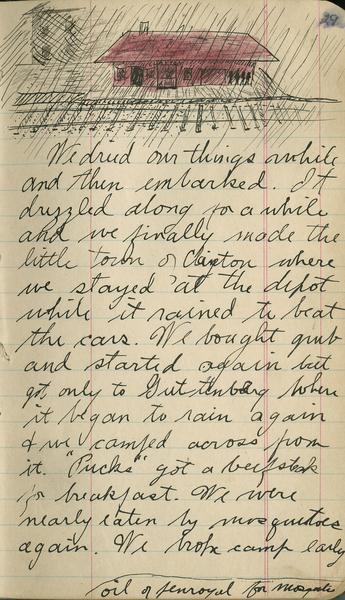 29
We dried our things while
and then embarked. It
drizzled along for a while
and we finally made the
little town of Clayton where
we stayed at the depot
while it rained to beat
the cars. We bought grub
and started again but
got only to Guttenberg where
it began to rain again
& we camped across from
it. "Pucks" got a beefstak
for breakfast. We were
nearly eaten by mosquitoes
again. We broke camp early
oil of penroyal for